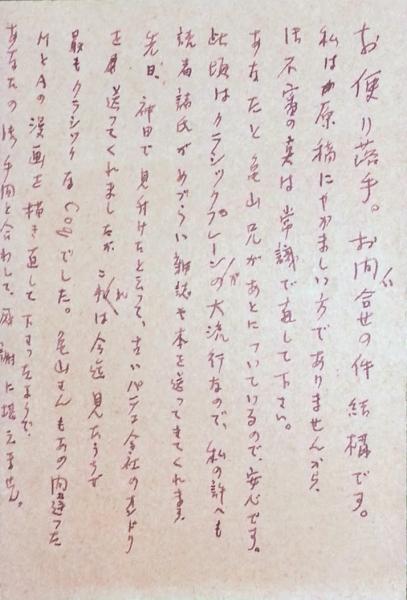 お便り落手。お問い合せの件 結構です。
私は原稿にやかましい方でありませんから、
御不審の点は常識で直して下さい。
あなたと亀山兄があとについているので、安心です。
此頃はクラシックプレーンが大流行なので、私の許へも
読者諸氏がめづらしい雑誌や本を送ってきてくれます。
先日、神田で見付けたと云って、古いパテェ会社のオンドリ
を送ってくれましたが、これは今迄見たうちで
最もクラシックなCogでした。亀山さんもあの間違った
HとAの漫画を描き直して下さったようで、
あなたの御手間と合わせて、感謝に堪えません。